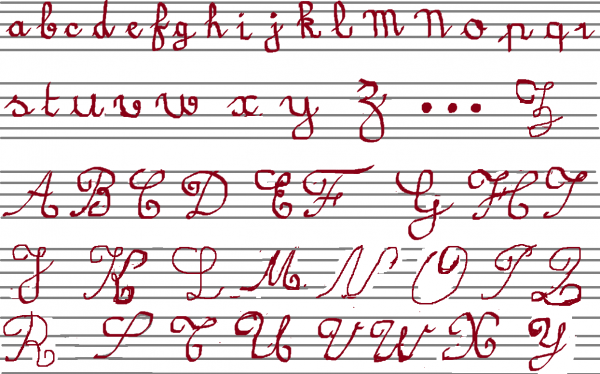 a b c d e f g h i j k l m n o p q r
s t u v w x y z ... Z
A B C D E F G H I
J K L M N O P Q
R S T U V W X Y